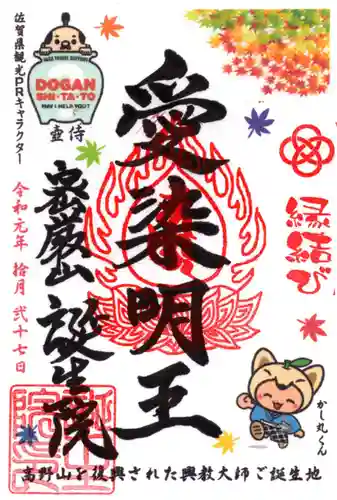 佐賀県観光PRキャラクター
DOGAN
SHI-TA-TO
MAY I HELP YOU?
壺侍
愛染明王
密厳山 誕生院
令和元年 拾月 弐十七日
縁結び
かし丸くん
高野山を復興された興教大師ご誕生地